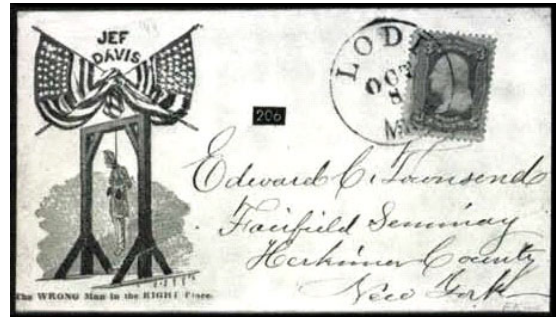 JEF
DAVIS
LODI
OCT
8
3
3
206
Edward C. Townsend
Fairfield Seminay
Herkimer County
New York
The WRONG Man in the RIGHT Place.